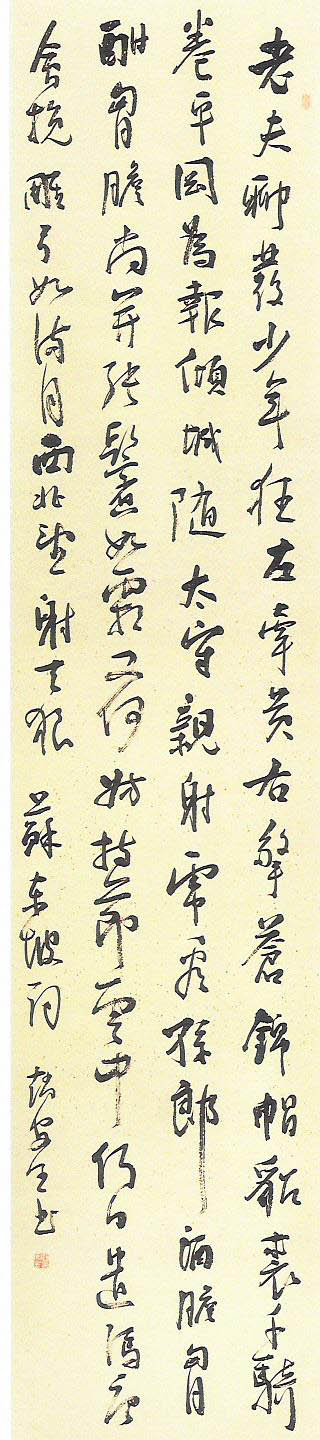 老夫聊發少年狂左牽黃右擎蒼錦帽貂裘千騎
卷平岡為報傾城隨太守親射虎看孫郎酒膽胷
酣胷膽尚開張鬢如霜又何妨持節雲中何日遣馮唐
會挽雕弓如滿月西北望射天狼 蘇東坡詞 書